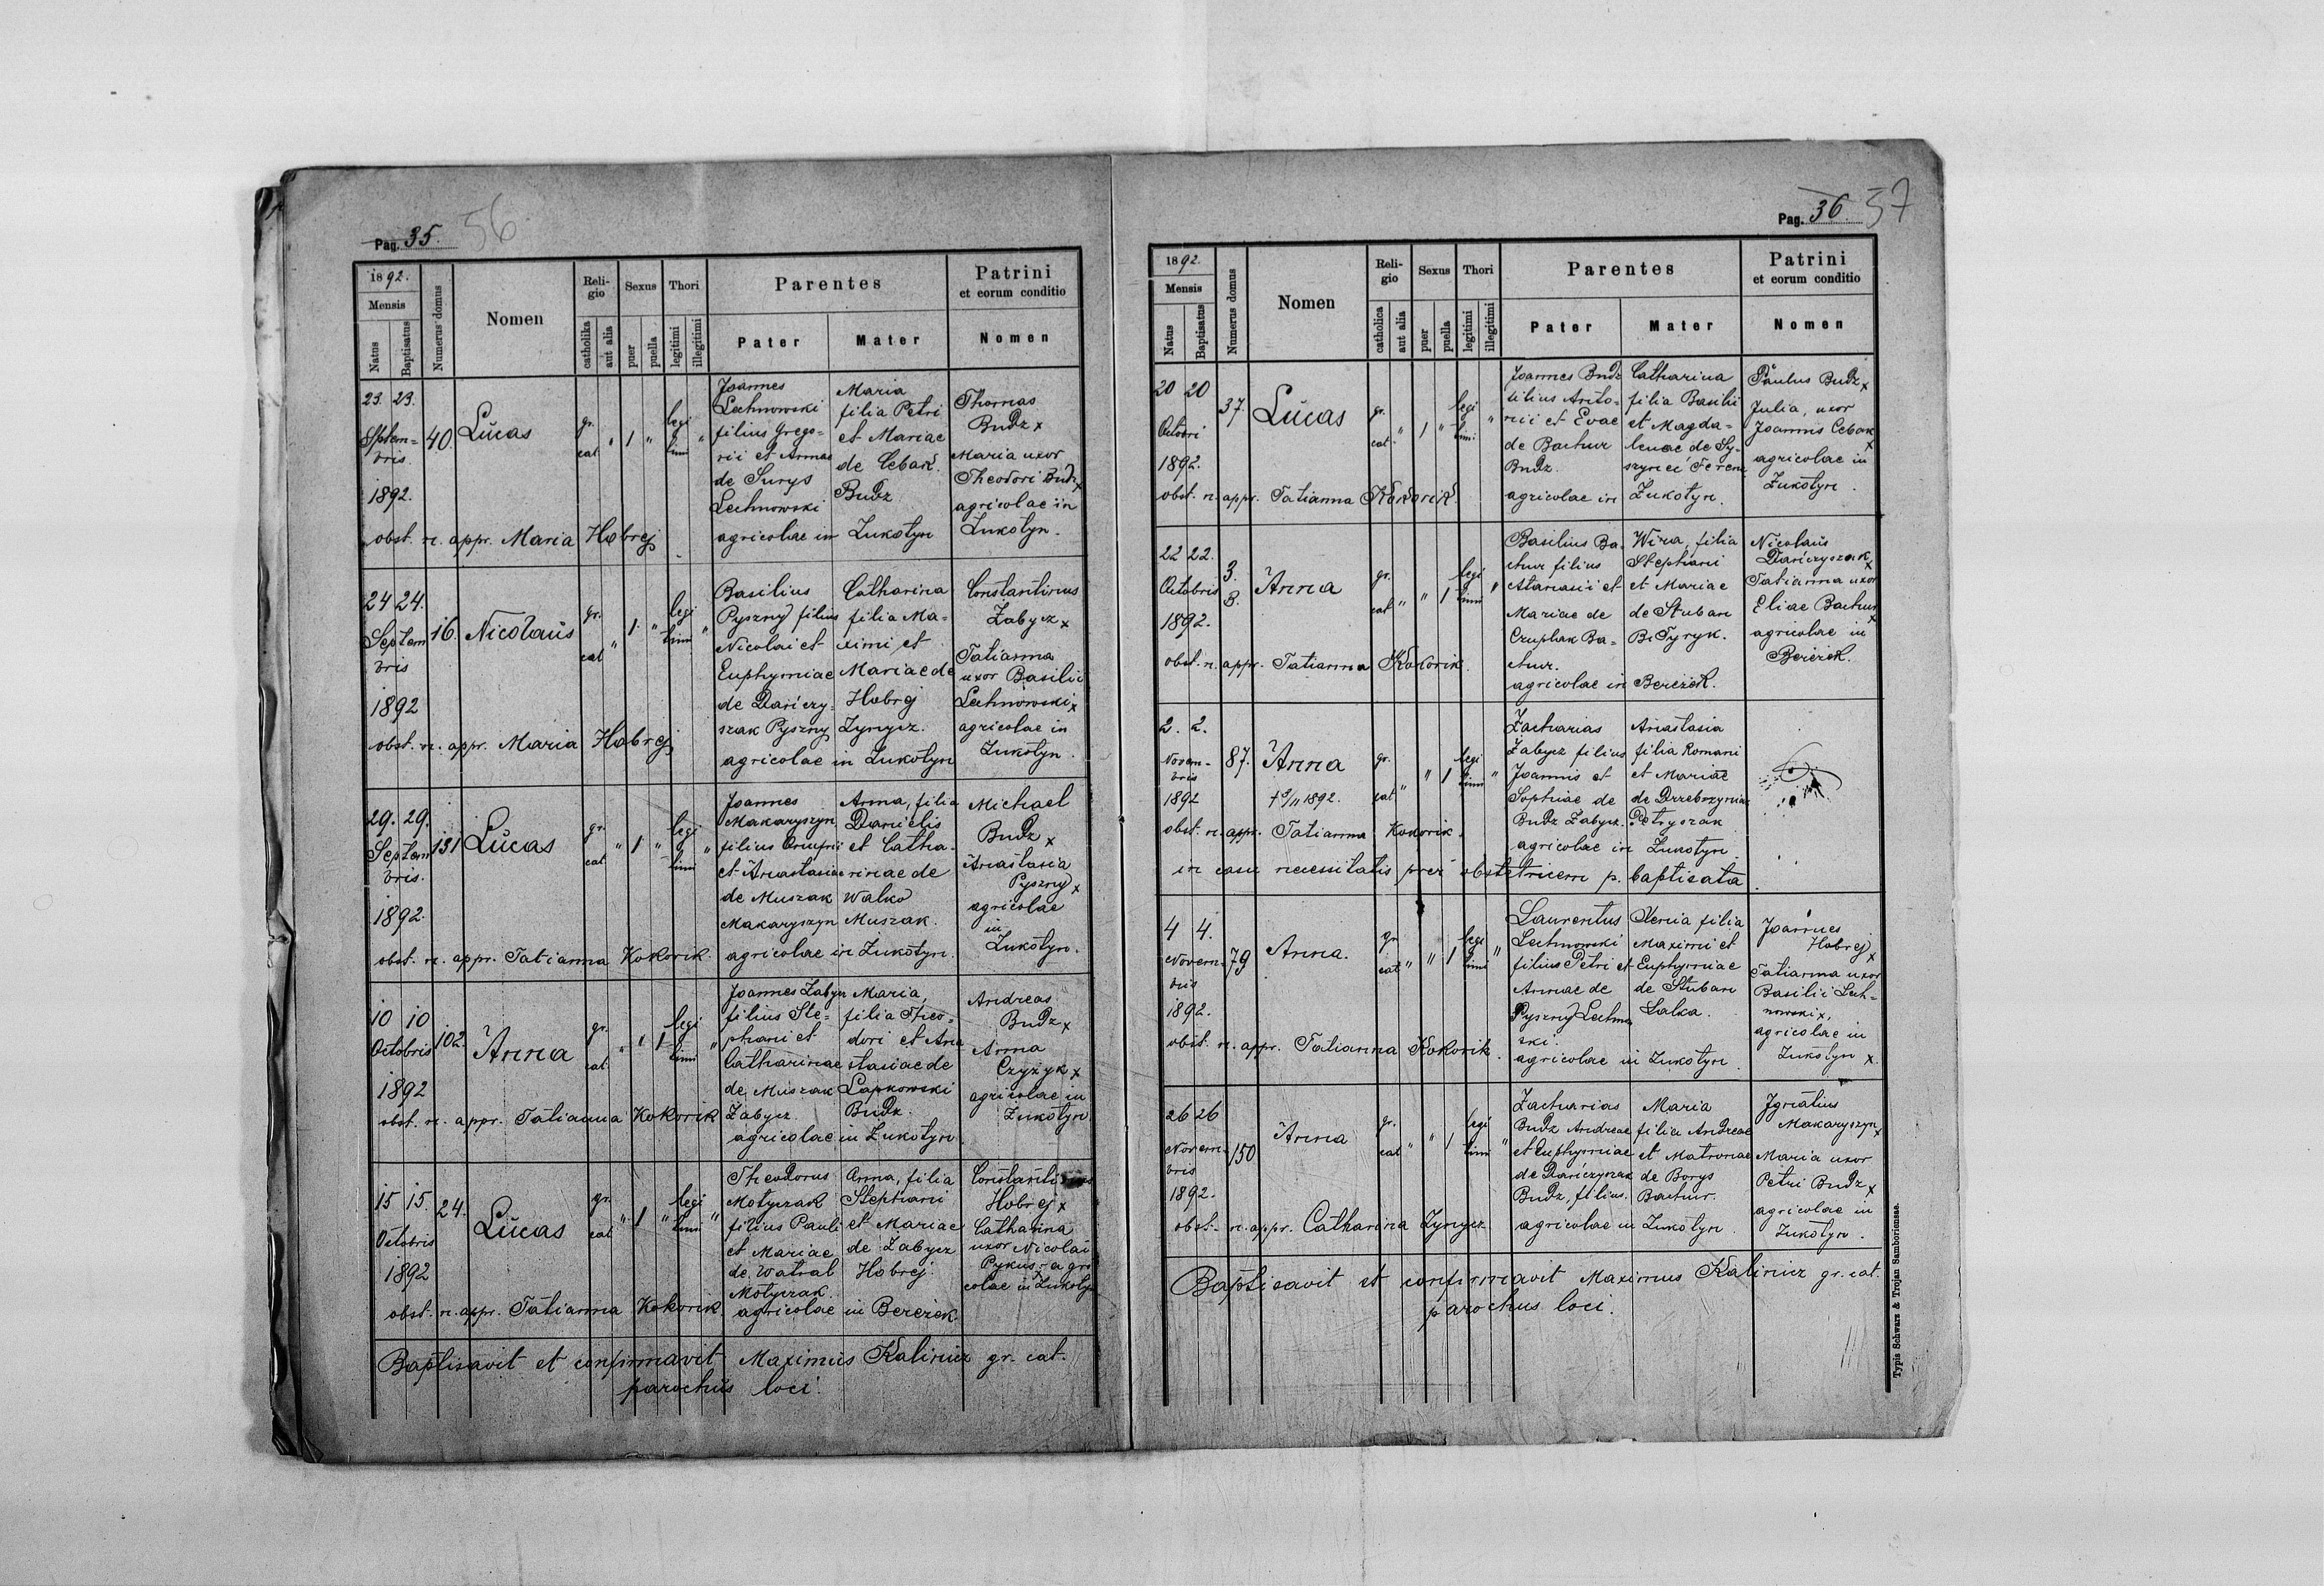 Pag. 35. 56
1892.
Mensis
Natus
Baptisatus
Numerus domus
Nomen
Religio
catholika
aut alia
Sexus
puer
puella
Thori
legitimi
illegitimi
Parentes
Pater
Mater
Patrini
et eorum conditio
Nomen
23. 23.
Septem=
bris
1892.
40.
Lucas
gr.
cat
"
1
"
legi
timi
"
Joannes
Lechnowski
filius Grego=
rii et Annae
de Surys
Lechnowski
agricolae in Łukotyn
Maria
filia Petri
et Mariae
de Cebak.
Budz
Thomas
Budz x
Maria uxor
Theodori Budz x
agricolae in
Łukotyn.
obst. n. appr. Maria Hobrej
24 24.
Septem
bris
1892
16.
Nicolaus
gr.
cat
"
1.
"
legi
timi
"
Basilius
Pyszny filius
Nicolai et
Euphymiae
de Danczy-
szak Pyszny
agricolae in Łukotyn
Catharina
filia Ma=
ximi et
Mariae de
Hobrej
Zynycz.
Constantinus
Żabycz x
Tatianna
uxor Basilii
Lechnowski x
agricolae in
Łukotyn.
obst. n. appr. Maria Hobrej
29. 29.
Septem
bris.
1892.
131
Lucas
gr.
cat
"
1
"
legi
timi
"
Joannes
Makaryszyn
filius Onufrii
et Anastasiae
de Muszak
Makaryszyn
agricolae in Łukotyn.
Anna, filia
Danielis
et Catha-
rinae de
Walko
Muszak.
Michael
Budz x
Anastasia
Pyszny x
agricolae
in
Łukotyn.
obst. n. appr. Tatianna Kokorik.
10 10
Octobris
1892
102.
Anna
gr.
cat
"
"
1
legi
timi
"
Joannes Żabycz
filius Ste=
phani et
Catharinae
de Muszak
Żabycz
agricolae in Łukotyn.
Maria,
filia Theo=
dori et Ana
stasiae de
Lapkowski
Budz.
Andreas
Budz x
Anna
Czyzyk x
agricolae in
Łukotyn
obst. n. appr. Tatianna Kokorik
15 15.
Octobris
1892
24.
Lucas
gr.
cat
"
1
"
legi
timi
"
Theodorus
Motyczak
filius Pauli
et Mariae
de Watral
Motyczak.
agricolae in Bereżek.
Anna, filia
Stephani
et Mariae
de Żabycz
Hobrej.
Constantinus
Hobrej x
Catharina
uxor Nicolai
Pykus x agri
colae in Łukotyn
obst. n. appr. Tatianna Kokorik.
Baptisavit et confirmavit Maximus Kalinicz gr. cat.
parochus loci.
Pag. 36. 57
1892.
Mensis
Natus
Baptisatus
Numerus domus
Nomen
Religio
catholica
aut alia
Sexus
puer
puella
Thori
legitimi
illegitimi
Parentes
Pater
Mater
Patrini
et eorum conditio
Nomen
20 20
Octobri
1892.
37.
Lucas
gr.
cat.
"
1
"
legi
timi
"
Joannes Budz
filius Anto=
nii et Evae
de Bachur
Budz.
agricolae in Łukotyn.
Catharina
filia Basilii
et Magda=
lenae de Sy-
Paulus Budz x
Julia, uxor
Joannis Cebak
x
agricolae in
Łukotyn.
obst. n. appr. Tatianna Kokorik.
22 22.
Octobris
1892.
3.
B.
Anna
gr.
cat
"
"
1
legi
timi
"
Basilius Ba-
chur filius
Atanasii et
Mariae de
Czuplak Ba=
chur.
agricolae in Bereżek.
Wira, filia
Stephani
et Mariae
de Stuban
Nicolaus
Danczyszak x
Tatianna uxor
Eliae Bachur
x
agricolae in
Bereżek.
obst. n. appr. Tatianna Kokorik.
2. 2.
Novem-
bris
1892
87.
Anna
gr.
cat
"
"
1
legi
timi
"
Zacharias
Żabycz filius
Joannis et
Sophiae de
Budz Żabycz.
agricolae in Łukotyn
Anastasia
filia Romani
et Mariae
Petryszak
obst. n. appr. Tatianna Kokorik.
in casu necessitatis per obstetricem p. baptisata.
4 4.
Novem-
bris
1892.
79
Anna.
gr.
cat
"
"
1
legi
timi
"
Laurentus
Lechnowski
filius Petri et
Annae de
Pyszny Lechnow
ski.
agricolae in Łukotyn.
Xenia filia
Maximi et
Euphymiae
de Stuban
Lalka.
Joannes
Hobrej x
Tatianna uxor
Basilii Lech-
nowski x,
agricolae in
Łukotyn x.
obst. n. appr. Tatianna Kokorik.
26 26
Novem-
bris
1892.
150
Anna
gr.
cat
"
"
1
legi
timi
"
Zacharias
Budz Andreae
et Euphymiae
de Danczyszak
Budz, filius.
agricolae in Łukotyn.
Maria
filia Andreae
et Matronae
de Borys
Bachur.
Ignatius
Makaryszyn x
Maria uxor
Petri Budz x
agricolae in
Łukotyn.
obst. n. appr. Catharina Zynycz
Baptisavit et confirmavit Maximus Kalinicz gr. cat.
parochus loci.
Typis Schwarz & Trojan Samboriensae.